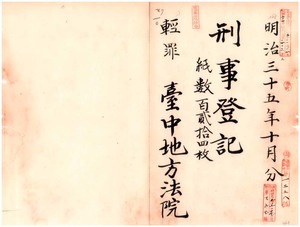 明治三十五年十月分
刑事登記
紙数百貳拾四枚
輕罪
臺中地方法院